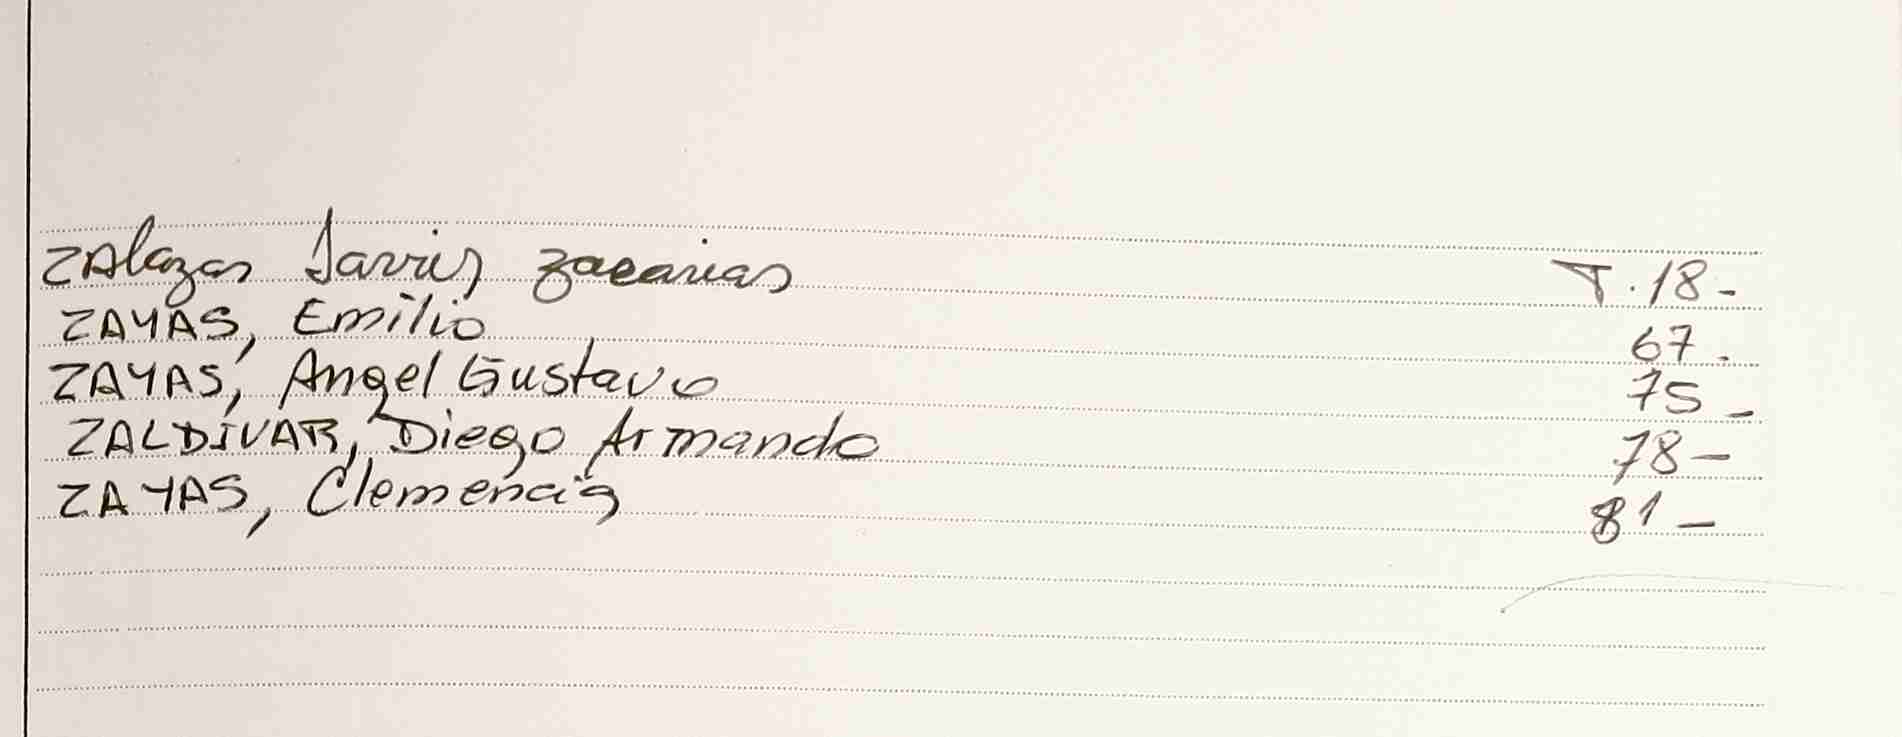 ZAlazar Javier Zacarias T.18-
ZAYAS, Emilio 67.
ZAYAS, Angel Gustavo 75-
ZALDIVAR, Diego Armando 78-
ZAYAS, Clemencia 81-